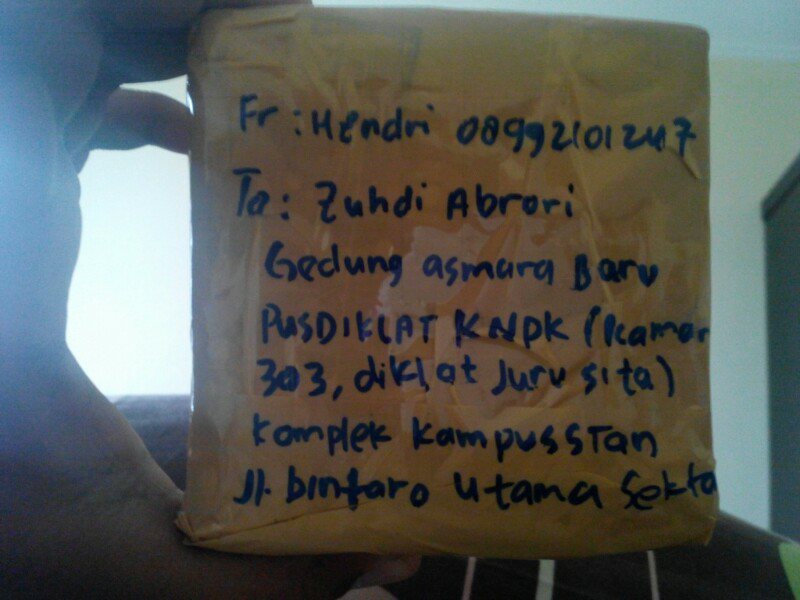 Fr : Hendri 08992101247
To : Zuhdi Abrori
Gedung asmara Baru
PUSDIKLAT KNPK (kamar
303, diklat Juru sita)
Komplek KampusSTan
Jl. bintaro Utama Sekto